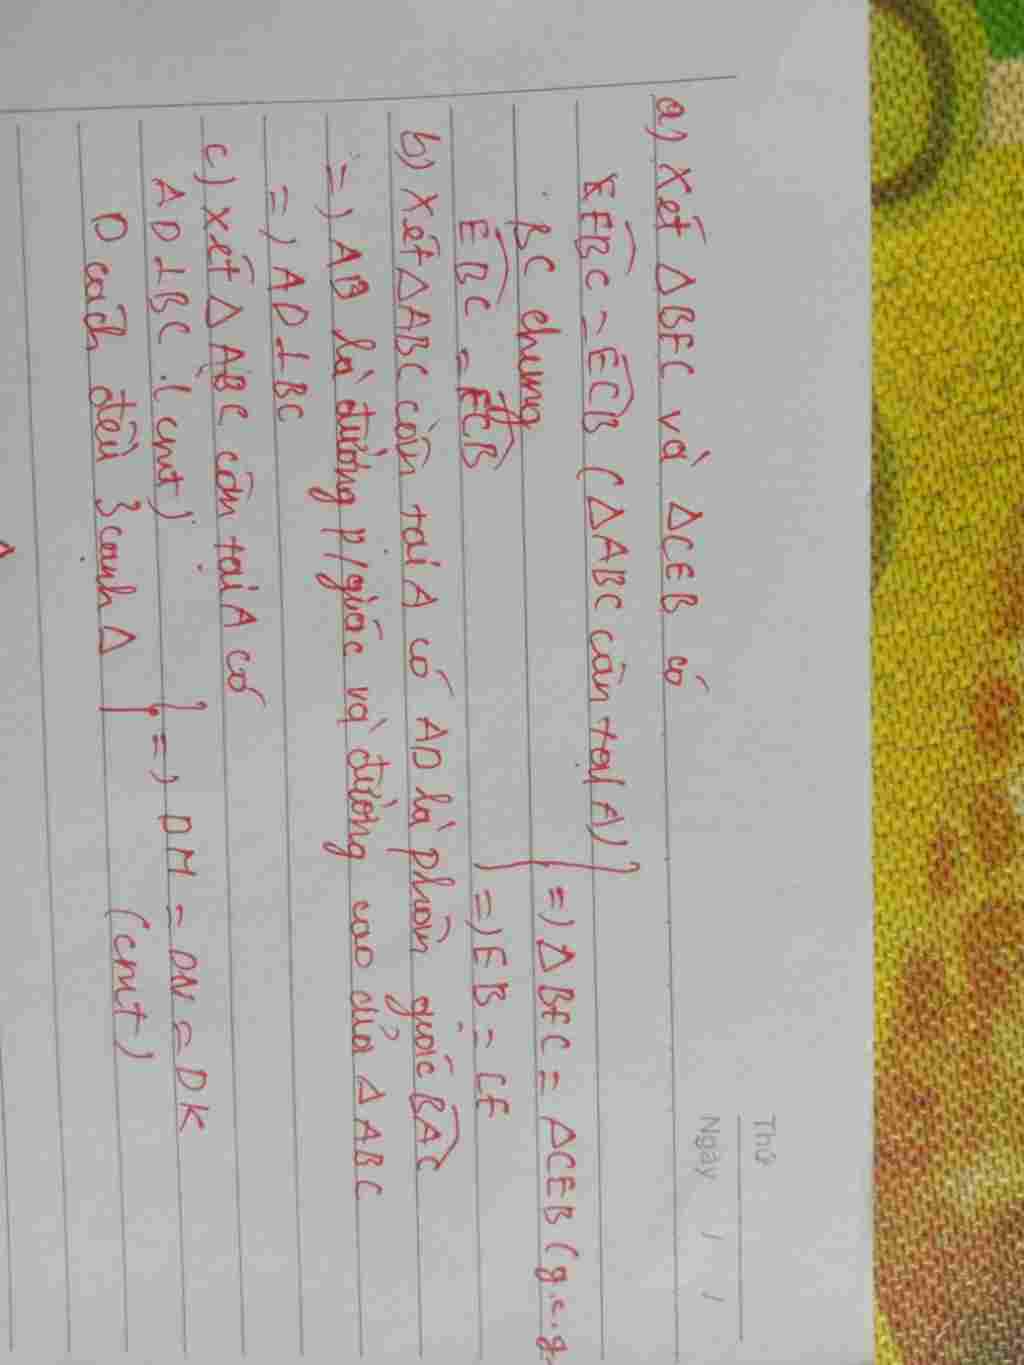 Thứ
Ngày / /
a) Xét ΔBFC và ΔCEB có
FBC = ECB (ΔABC cân tại A)
BC chung
=) ΔBFC = ΔCEB (g.c.g
EBC = FCB
=) EB = CF
b) Xét ΔABC cân tại A có AD là phân giác BAC
=) AB là đường p/giác và đường cao của ΔABC
=) AD ⊥ BC
c) xét Δ ABC cân tại A có
AD ⊥ BC (cmt)
=) DM = DN = DK
D cách đều 3 cạnh Δ (cmt)